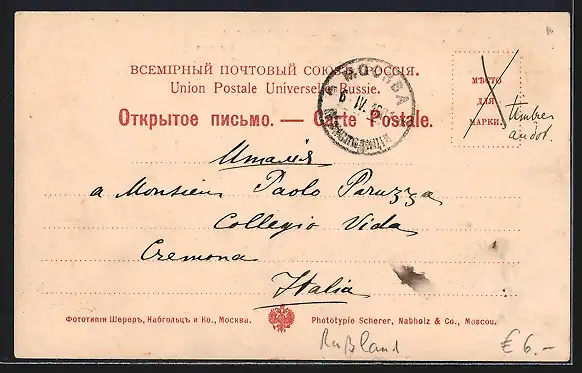 ВСЕМІРНЫЙ ПОЧТОВЫЙ СОЮЗЪ РОССІЯ.
Union Postale Universelle Russie.
Открытое письмо. — Carte Postale.
МОСКВА
6 IV
МѢСТО
ДЛЯ
МАРКИ.
timbre
au dos.
Италія
a Monsieur Paolo Peruzza
Collegio Vida
Cremona
Italia
Фототипія Шереръ, Набгольцъ и Ко., Москва.
Phototypie Scherer, Nabholz & Co., Moscou.
Rußland
€ 6.-